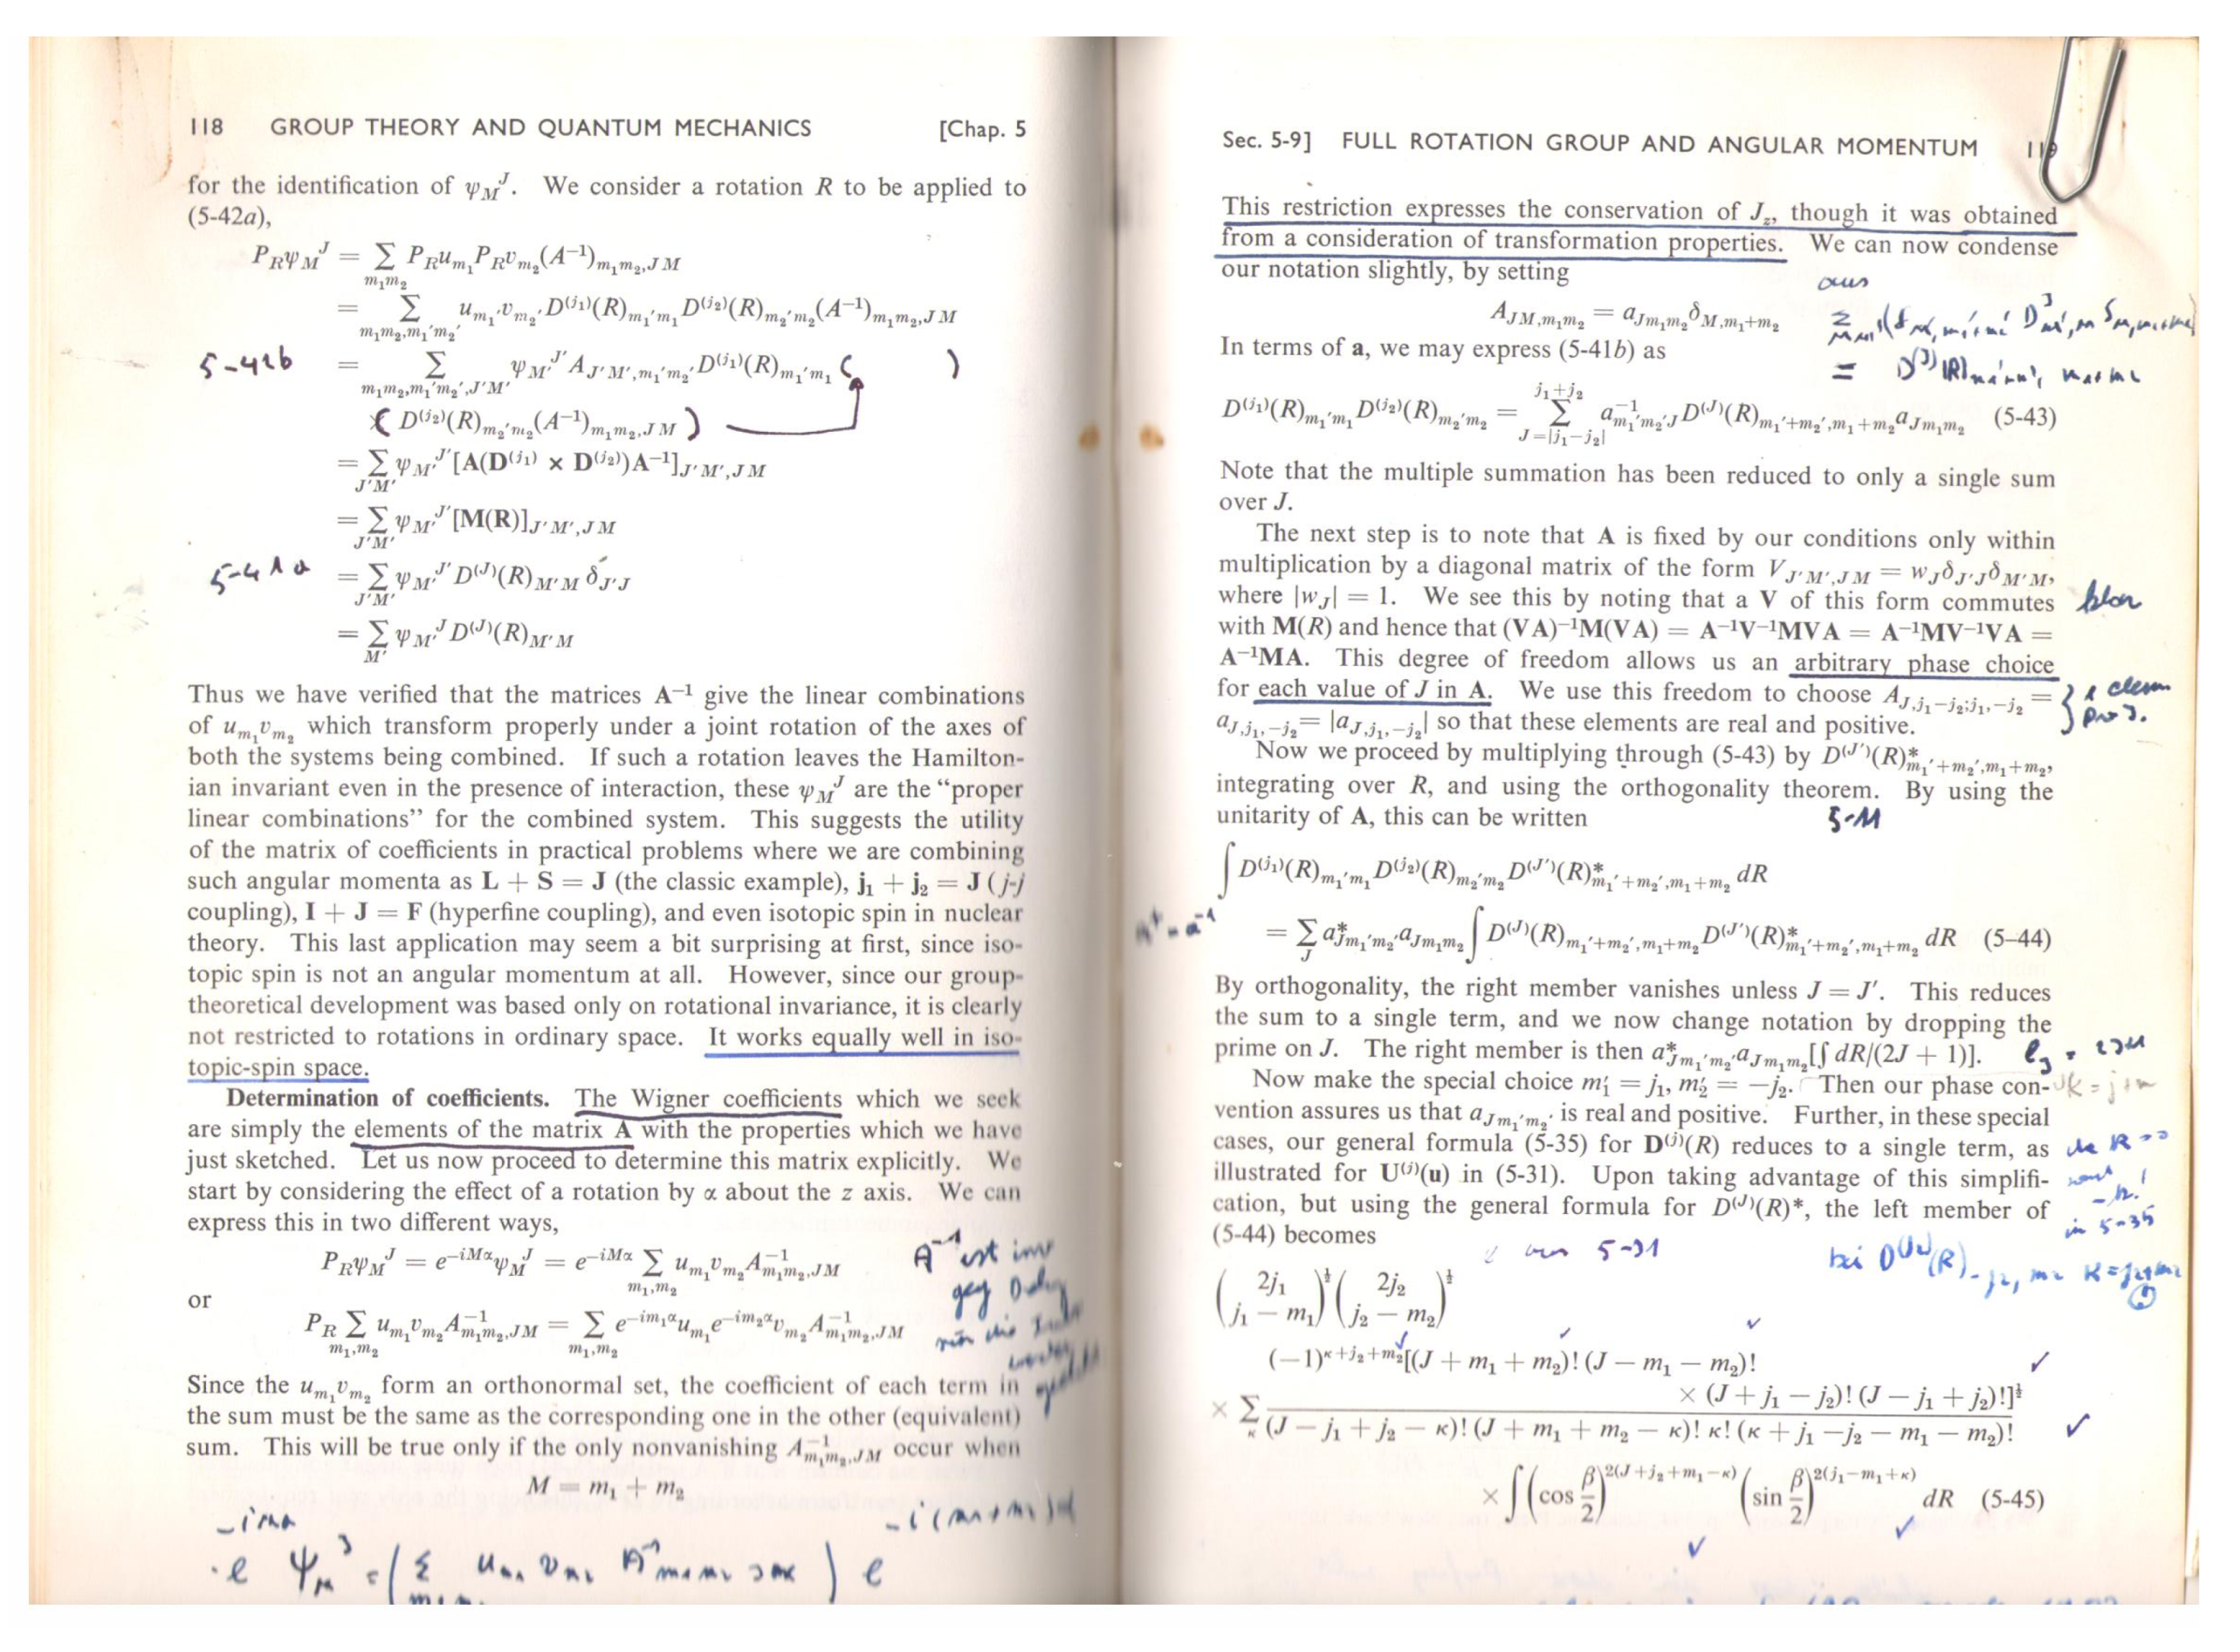 118 GROUP THEORY AND QUANTUM MECHANICS [Chap. 5
for the identification of ψ_M^J. We consider a rotation R to be applied to
(5-42a),
P_Rψ_M^J = ∑_{m₁m₂} P_Ru_{m₁}P_Rv_{m₂}(A⁻¹)_{m₁m₂,JM}
= ∑_{m₁m₂,m₁′m₂′} u_{m₁′}v_{m₂′}D^{(j₁)}(R)_{m₁′m₁}D^{(j₂)}(R)_{m₂′m₂}(A⁻¹)_{m₁m₂,JM}
5-42b = ∑_{m₁m₂,m₁′m₂′,J′M′} ψ_{M′}^{J′}A_{J′M′,m₁′m₂′}D^{(j₁)}(R)_{m₁′m₁} ( )
× ( D^{(j₂)}(R)_{m₂′m₂}(A⁻¹)_{m₁m₂,JM} )
= ∑_{J′M′} ψ_{M′}^{J′}[A(D^{(j₁)} × D^{(j₂)})A⁻¹]_{J′M′,JM}
= ∑_{J′M′} ψ_{M′}^{J′}[M(R)]_{J′M′,JM}
5-41a = ∑_{J′M′} ψ_{M′}^{J′}D^{(J)}(R)_{M′M} δ_{J′J}
= ∑_{M′} ψ_{M′}^{J}D^{(J)}(R)_{M′M}
Thus we have verified that the matrices A⁻¹ give the linear combinations
of u_{m₁}v_{m₂} which transform properly under a joint rotation of the axes of
both the systems being combined. If such a rotation leaves the Hamilton-
ian invariant even in the presence of interaction, these ψ_M^J are the “proper
linear combinations” for the combined system. This suggests the utility
of the matrix of coefficients in practical problems where we are combining
such angular momenta as L + S = J (the classic example), j₁ + j₂ = J (j-j
coupling), I + J = F (hyperfine coupling), and even isotopic spin in nuclear
theory. This last application may seem a bit surprising at first, since iso-
topic spin is not an angular momentum at all. However, since our group-
theoretical development was based only on rotational invariance, it is clearly
not restricted to rotations in ordinary space. It works equally well in iso-
topic-spin space.
Determination of coefficients. The Wigner coefficients which we seek
are simply the elements of the matrix A with the properties which we have
just sketched. Let us now proceed to determine this matrix explicitly. We
start by considering the effect of a rotation by α about the z axis. We can
express this in two different ways,
P_Rψ_M^J = e^{−iMα}ψ_M^J = e^{−iMα} ∑_{m₁,m₂} u_{m₁}v_{m₂}A⁻¹_{m₁m₂,JM}
A⁻¹ ist
or
P_R ∑_{m₁,m₂} u_{m₁}v_{m₂}A⁻¹_{m₁m₂,JM} = ∑_{m₁,m₂} e^{−im₁α}u_{m₁}e^{−im₂α}v_{m₂}A⁻¹_{m₁m₂,JM}
Since the u_{m₁}v_{m₂} form an orthonormal set, the coefficient of each term in
the sum must be the same as the corresponding one in the other (equivalent)
sum. This will be true only if the only nonvanishing A⁻¹_{m₁m₂,JM} occur when
M = m₁ + m₂
Sec. 5-9] FULL ROTATION GROUP AND ANGULAR MOMENTUM 119
This restriction expresses the conservation of J_z, though it was obtained
from a consideration of transformation properties. We can now condense
our notation slightly, by setting
aus
A_{JM,m₁m₂} = a_{Jm₁m₂}δ_{M,m₁+m₂}
In terms of a, we may express (5-41b) as
D^{(j₁)}(R)_{m₁′m₁}D^{(j₂)}(R)_{m₂′m₂} = ∑_{J=|j₁−j₂|}^{j₁+j₂} a⁻¹_{m₁′m₂′J}D^{(J)}(R)_{m₁′+m₂′,m₁+m₂}a_{Jm₁m₂} (5-43)
Note that the multiple summation has been reduced to only a single sum
over J.
The next step is to note that A is fixed by our conditions only within
multiplication by a diagonal matrix of the form V_{J′M′,JM} = w_Jδ_{J′J}δ_{M′M},
where |w_J| = 1. We see this by noting that a V of this form commutes
klar
with M(R) and hence that (VA)⁻¹M(VA) = A⁻¹V⁻¹MVA = A⁻¹MV⁻¹VA =
A⁻¹MA. This degree of freedom allows us an arbitrary phase choice
for each value of J in A. We use this freedom to choose A_{J,j₁−j₂;j₁,−j₂} =
a_{J,j₁,−j₂} = |a_{J,j₁,−j₂}| so that these elements are real and positive.
1 Elem
pro J.
Now we proceed by multiplying through (5-43) by D^{(J′)}(R)*_{m₁′+m₂′,m₁+m₂},
integrating over R, and using the orthogonality theorem. By using the
unitarity of A, this can be written
5-11
∫ D^{(j₁)}(R)_{m₁′m₁}D^{(j₂)}(R)_{m₂′m₂}D^{(J′)}(R)*_{m₁′+m₂′,m₁+m₂} dR
= ∑_J a*_{Jm₁′m₂′}a_{Jm₁m₂} ∫ D^{(J)}(R)_{m₁′+m₂′,m₁+m₂}D^{(J′)}(R)*_{m₁′+m₂′,m₁+m₂} dR (5-44)
By orthogonality, the right member vanishes unless J = J′. This reduces
the sum to a single term, and we now change notation by dropping the
prime on J. The right member is then a*_{Jm₁′m₂′}a_{Jm₁m₂}[∫ dR/(2J + 1)].
Now make the special choice m₁′ = j₁, m₂′ = −j₂. Then our phase con-
vention assures us that a_{Jm₁′m₂′} is real and positive. Further, in these special
cases, our general formula (5-35) for D^{(j)}(R) reduces to a single term, as
illustrated for U^{(j)}(u) in (5-31). Upon taking advantage of this simplifi-
cation, but using the general formula for D^{(J)}(R)*, the left member of
in 5-35
(5-44) becomes
aus 5-31
(2j₁ / j₁ − m₁)^{½} (2j₂ / j₂ − m₂)^{½}
× ∑_κ (−1)^{κ+j₂+m₂}[(J + m₁ + m₂)! (J − m₁ − m₂)!
× (J + j₁ − j₂)! (J − j₁ + j₂)!]^{½}
(J − j₁ + j₂ − κ)! (J + m₁ + m₂ − κ)! κ! (κ + j₁ − j₂ − m₁ − m₂)!
× ∫ (cos β/2)^{2(J+j₂+m₁−κ)} (sin β/2)^{2(j₁−m₁+κ)} dR (5-45)